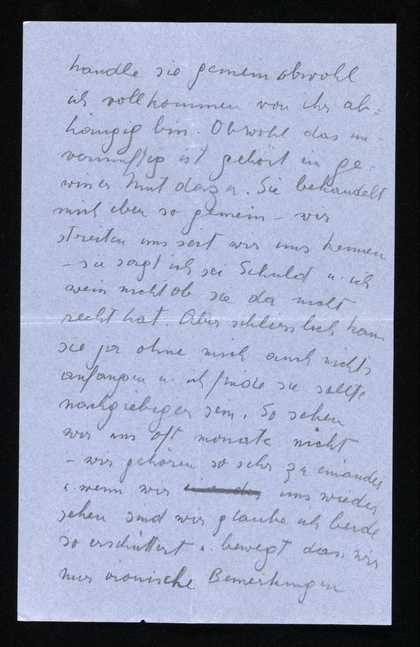 handle sie gemein obwohl
ich vollkommen von ihr ab=
hängig bin. Obwohl das un-
vernünftig ist gehört ein ge-
wisser Mut dazu. Sie behandelt
mich eben so gemein – wir
streiten uns seit wir uns kennen
– sie sagt ich sei Schuld u. ich
weiss nicht ob sie da nicht
recht hat. Aber schliesslich kann
sie ja ohne mich auch nichts
anfangen u. ich finde sie sollte
nachgiebiger sein. So sehen
wir uns oft monate nicht
– wir gehören so sehr zu einander
u. wenn wir uns wieder
sehen sind wir glaube ich beide
so erschüttert u. bewegt dass wir
nur ironische Bemerkungen